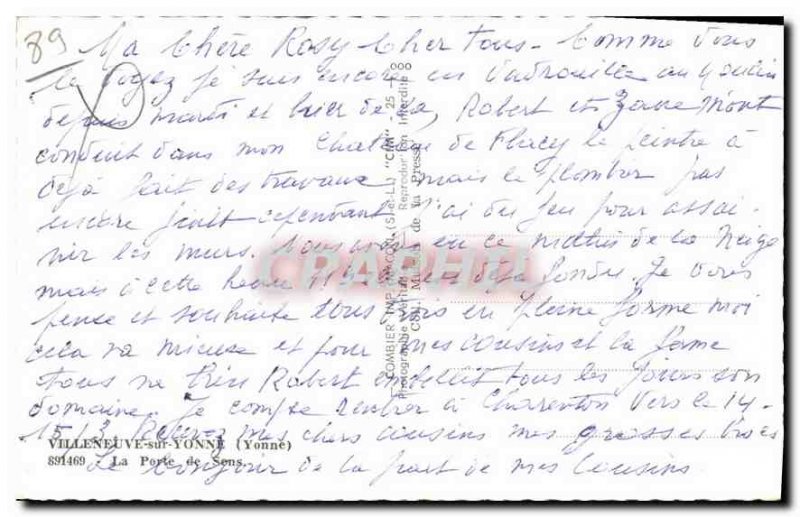 89
Ma Chère Rosy Cher Tous - Comme vous
le voyez je suis encore en Vadrouille au Moulin
depuis mardi et hier de là, Robert et m'ont
conduit dans mon Chateau de Flacy le peintre à
déjà fait des travaux mais le plombier pas
encore fait cependant j'ai du feu pour assai-
nir les murs. Nous avons eu ce matin de la Neige
mais à cette heure 11h fondu. Je vous
pense et souhaite tous en pleine forme moi
cela va mieux et pour mes cousins et la forme
tous va très Robert embellit tous les jours son
domaine. Je compte rentrer à Charenton vers le 14-
15/3. Recevez mes chers cousins mes grosses bises
Le bonjour de la part de mes Cousins.
VILLENEUVE-sur-YONNE (Yonne)
891469 - La Porte de Sens.
COMBIER IMP. MACON (S.-et-L.) "CIM"
Reproduction Interdite
CPARAMA